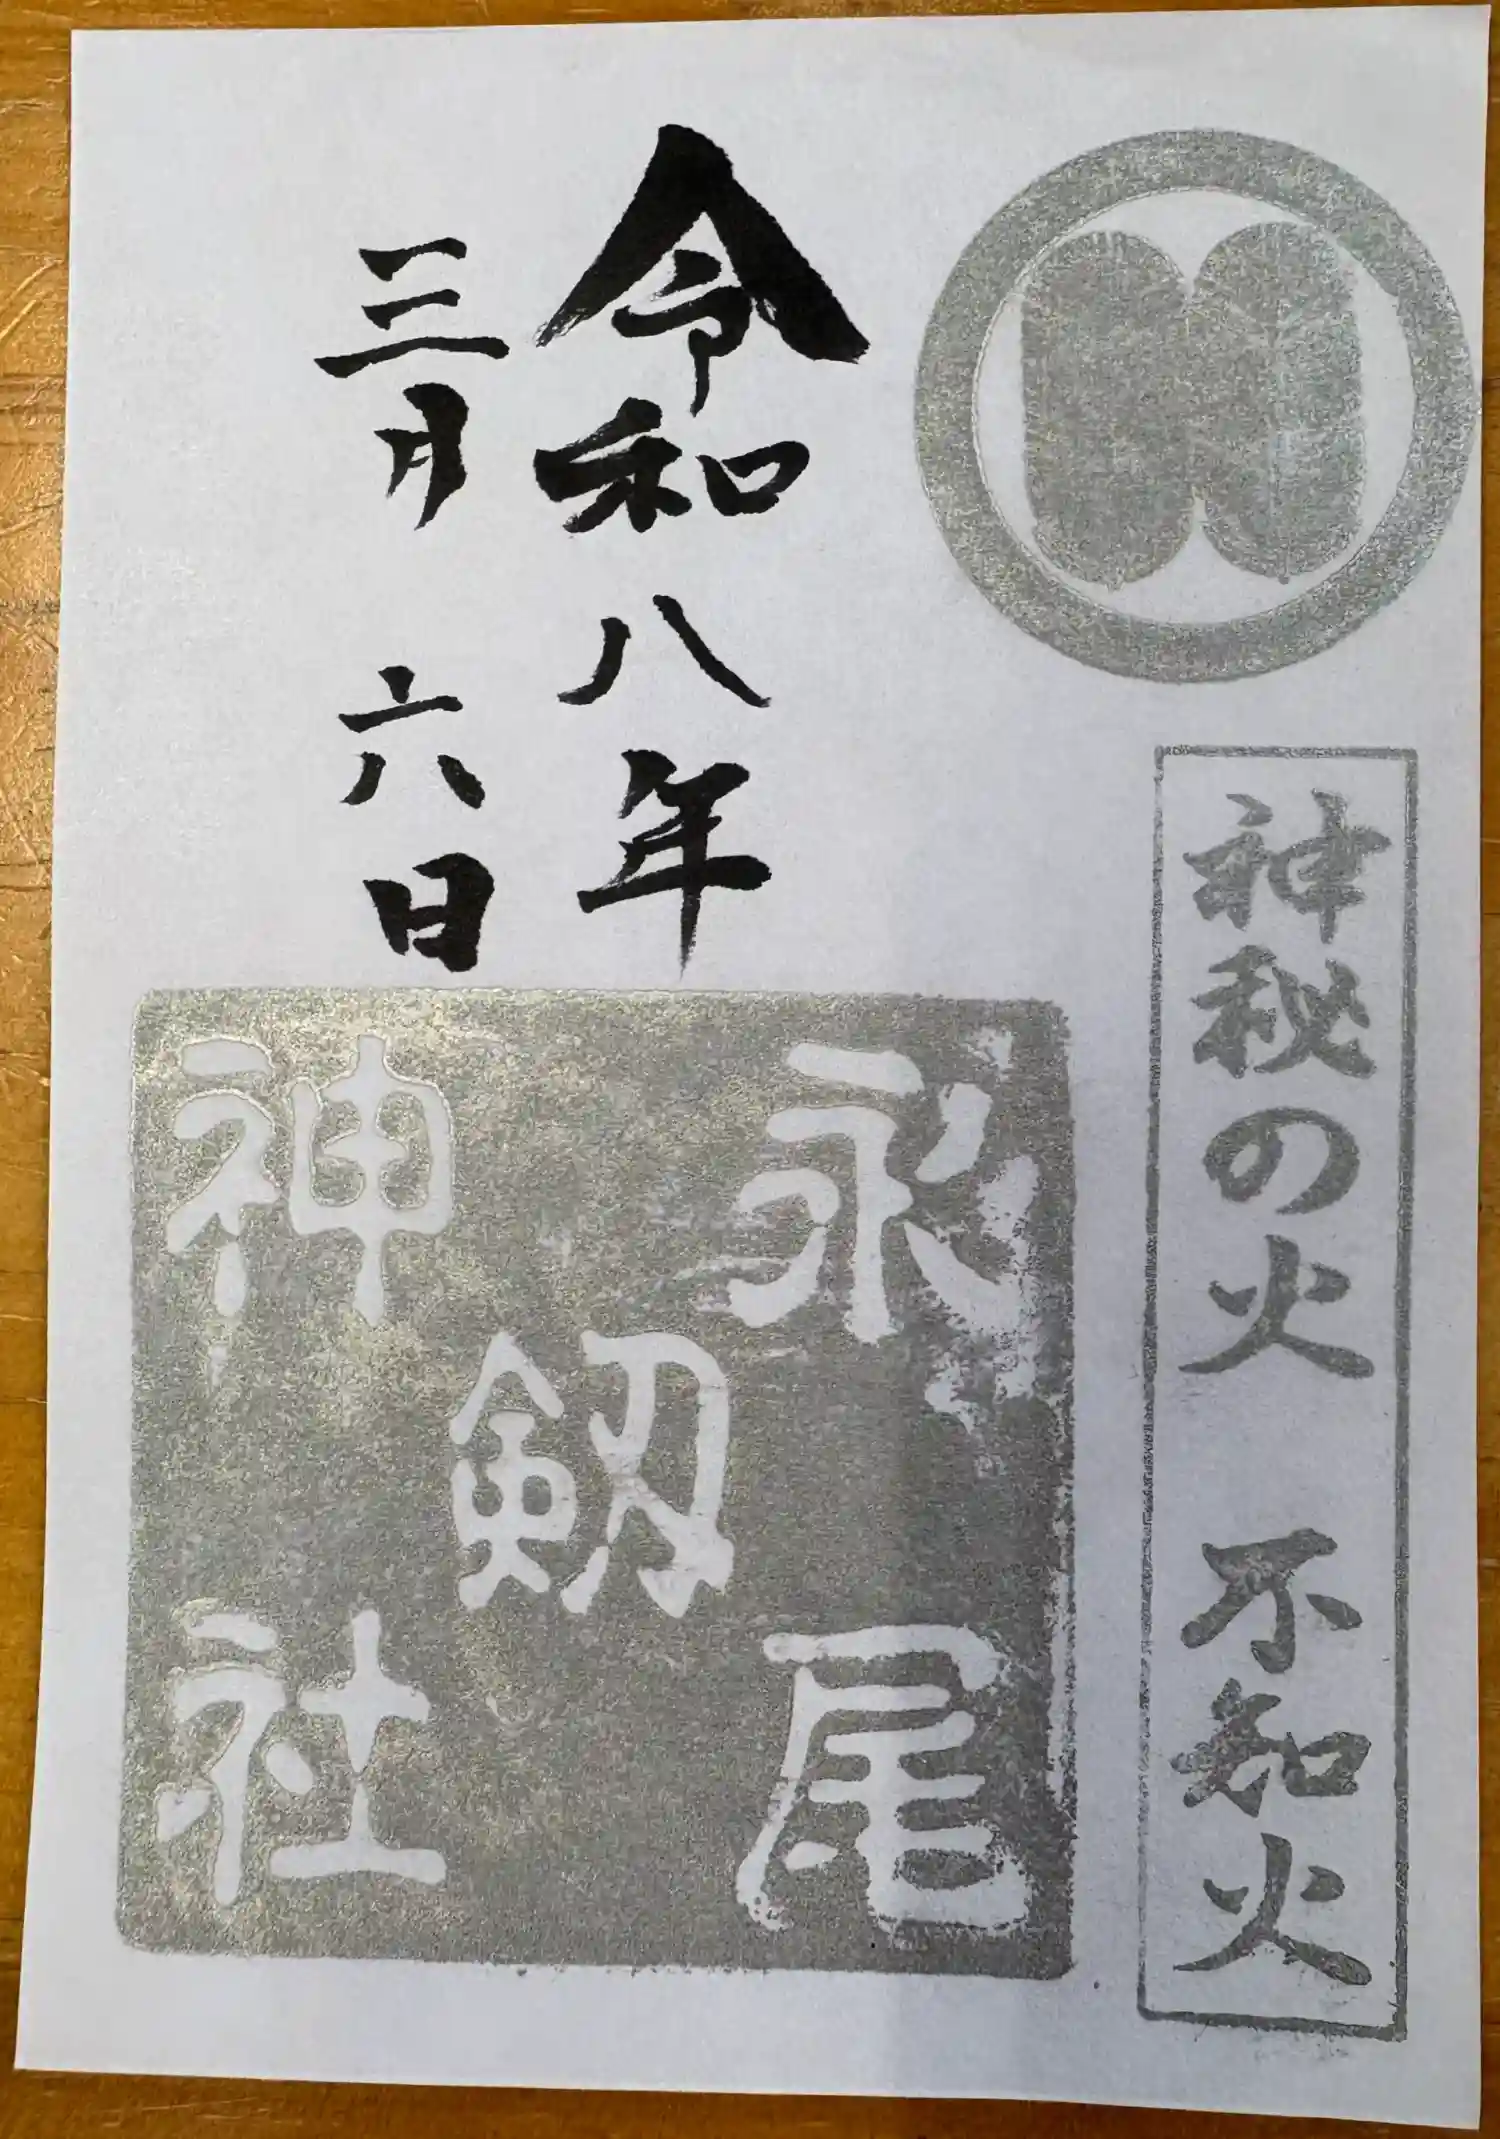 神秘の火 不知火
令和八年
三月六日
永尾
剱
神社